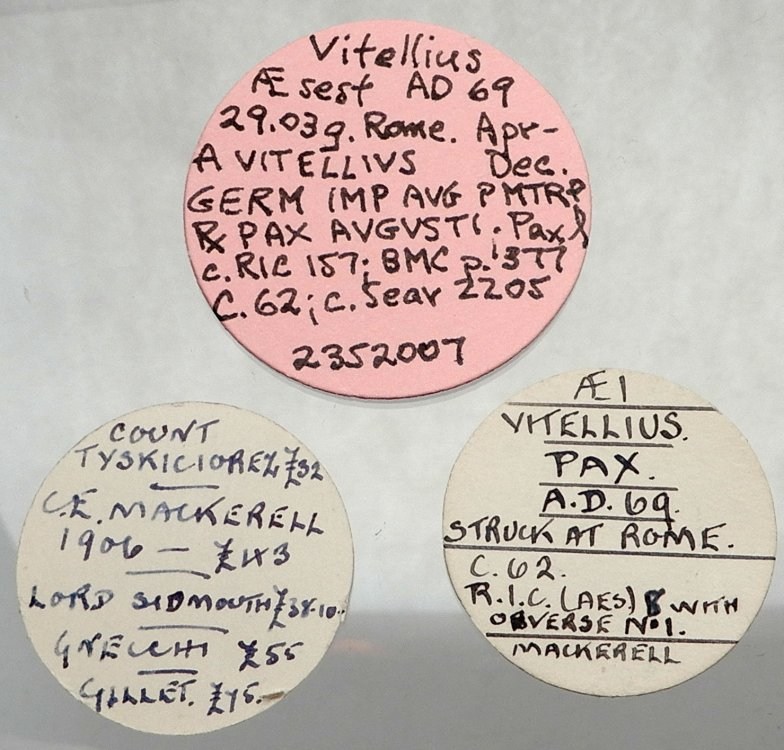 Vitellius
Æ sest AD 69
29.03g. Rome. Apr-
A VITELLIVS Dec.
GERM IMP AVG PMTRP
PAX AVGVSTI. Pax l
c. RIC 157; BMC p. 377
C. 62; c. Sear 2205
2352007
COUNT
£32
C.E. MACKERELL
1906 —
LORD SIDMOUTH £38-10-
GNECCHI £55
GILLET.
Æ1
VITELLIUS.
PAX.
A.D. 69.
STRUCK AT ROME.
C. 62.
R.I.C. (AES) 8 WITH
OBVERSE No1.
MACKERELL